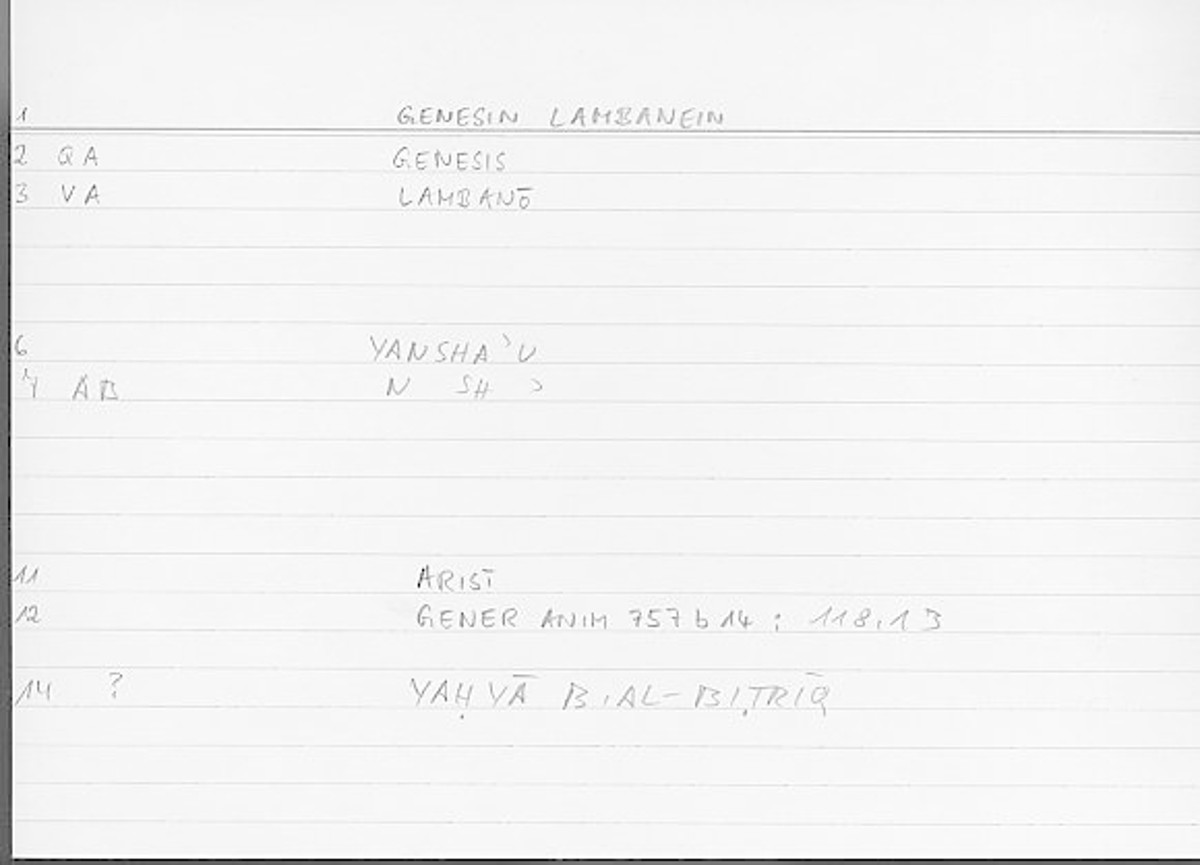 1 GENESIN LAMBANEIN
2 QA GENESIS
3 VA LAMBANŌ
6 YANSHAʾU
AB N SH ʾ
11 ARIST
12 GENER ANIM 757 b 14 ; 118,13
14 ? YAḤYĀ B. AL-BIṬRĪQ